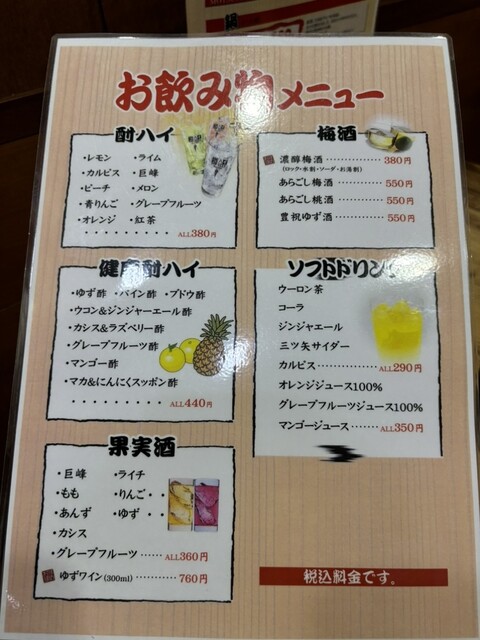 お飲み物メニュー
酎ハイ
・レモン ・ライム
・カルピス ・巨峰
・ピーチ ・メロン
・青りんご ・グレープフルーツ
・オレンジ ・紅茶
・・・・・・・・・ ALL380円
健康酎ハイ
・ゆず酢 ・パイン酢 ・ブドウ酢
・ウコン&ジンジャーエール酢
・カシス&ラズベリー酢
・グレープフルーツ酢
・マンゴー酢
・マカ&にんにくスッポン酢
・・・・・・・・・ ALL440円
果実酒
・巨峰 ・ライチ
・もも ・りんご・・
・あんず ・ゆず・・
・カシス
・グレープフルーツ ‥‥‥ ALL360円
ゆずワイン(300ml) ‥‥‥‥‥ 760円
梅酒
濃醇梅酒 ‥‥‥‥‥‥ 380円
(ロック・水割・ソーダ・お湯割)
あらごし梅酒 ‥‥‥‥‥ 550円
あらごし桃酒 ‥‥‥‥‥ 550円
豊祝ゆず酒 ‥‥‥‥‥‥ 550円
ソフトドリンク
ウーロン茶
コーラ
ジンジャエール
三ツ矢サイダー
カルピス ‥‥‥‥‥‥‥ ALL290円
オレンジジュース100%
グレープフルーツジュース100%
マンゴージュース ‥‥‥ ALL350円
税込料金です。